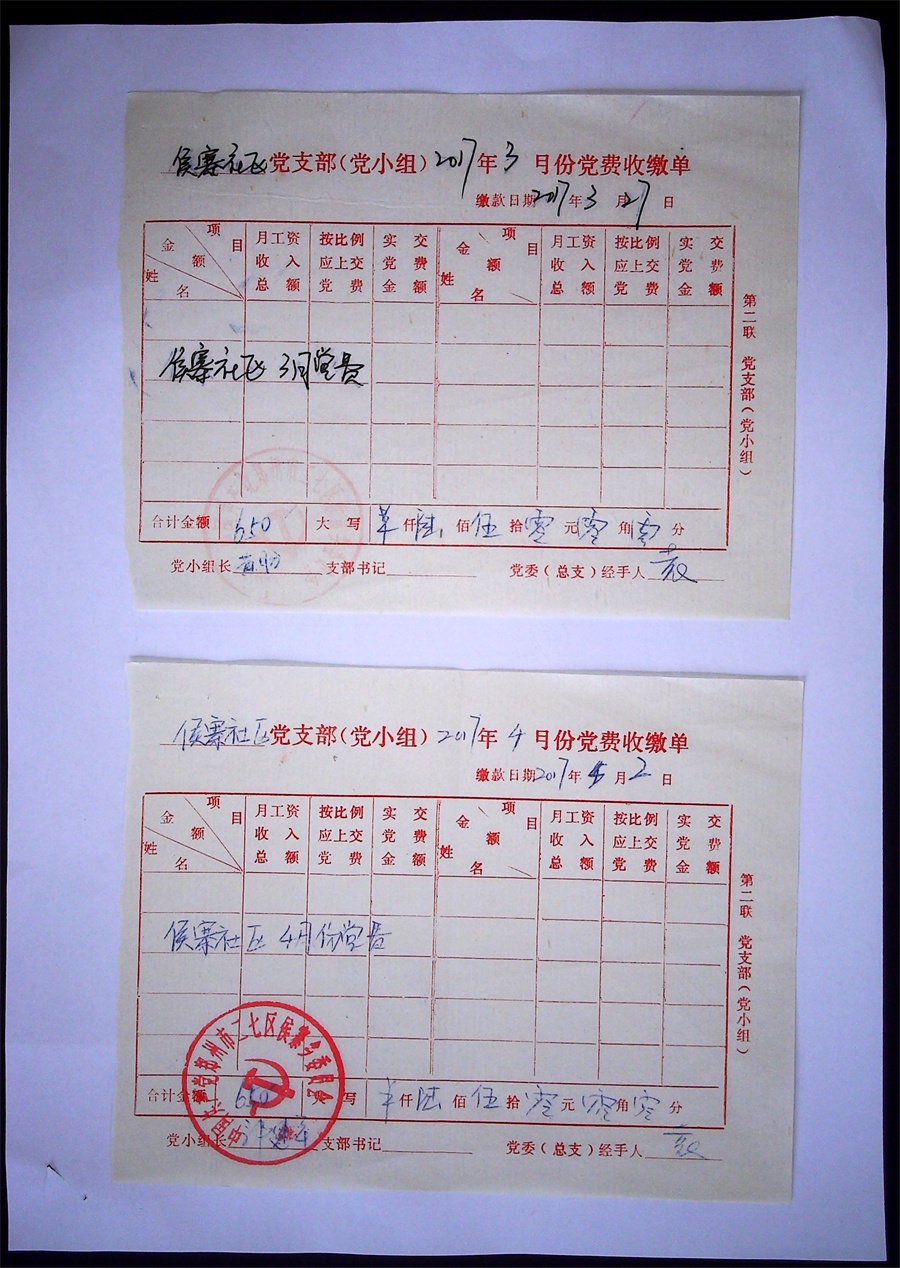 侯寨社区党支部(党小组)2017年3月份党费收缴单
缴款日期2017年3月27日
项目 金额 姓名 月工资收入总额 按比例应上交党费 实交党费金额 项目 金额 姓名 月工资收入总额 按比例应上交党费 实交党费金额
侯寨社区 3月党费
合计金额 650 大写 仟陆佰伍拾零元零角零分
党小组长 支部书记 党委(总支)经手人
第二联 党支部(党小组)
侯寨社区党支部(党小组)2017年4月份党费收缴单
缴款日期2017年4月2日
项目 金额 姓名 月工资收入总额 按比例应上交党费 实交党费金额 项目 金额 姓名 月工资收入总额 按比例应上交党费 实交党费金额
侯寨社区 4月份党费
合计金额 650 大写 仟陆佰伍拾零元零角零分
党小组长 支部书记 党委(总支)经手人
第二联 党支部(党小组)
中国共产党郑州市二七区侯寨乡委员会